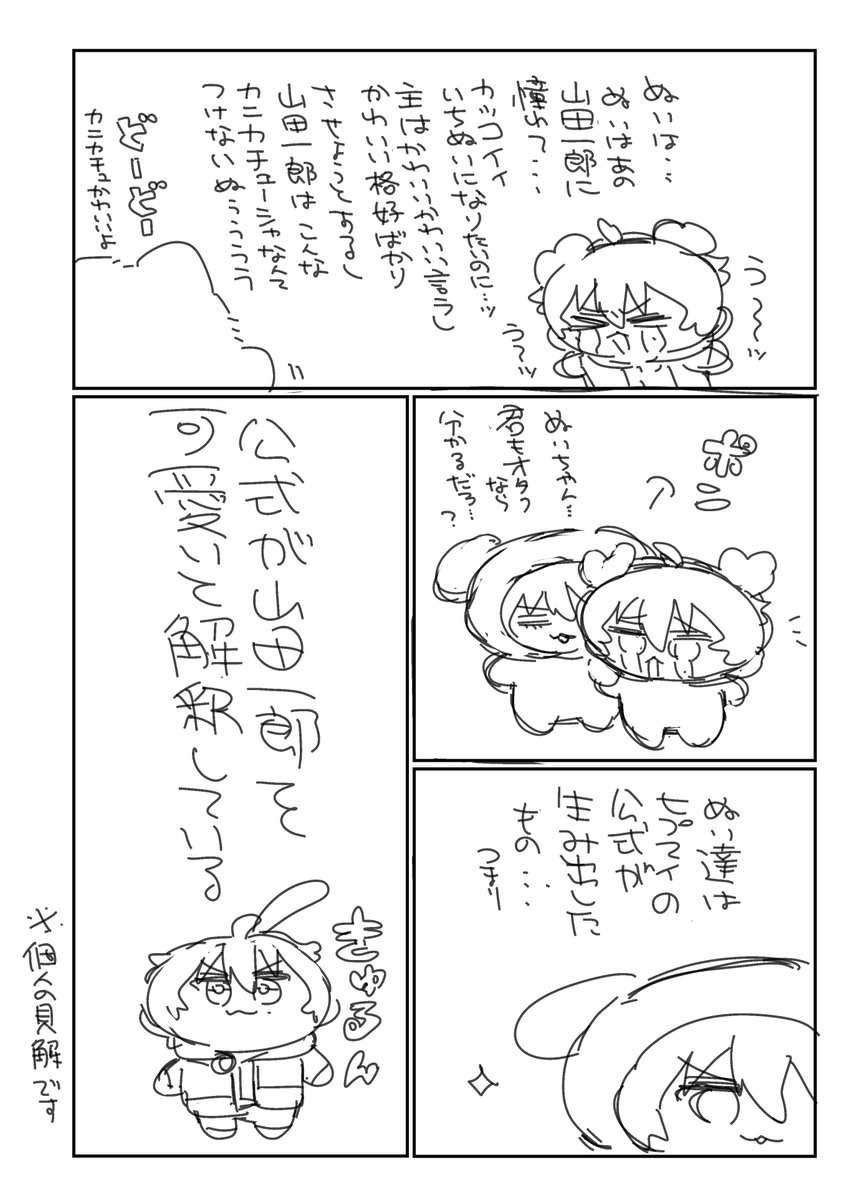 ぬいは…
ぬいはあの
山田一郎に
憧れて…
カッコイイ
いちぬいになりたいのに…ッ
主はかわいいかわいい言うし
かわいい格好ばかり
させようとするし
山田一郎はこんな
カニカチューシャなんて
つけないぬぅぅぅぅ
う〜〜ッ
う〜ッ
ビービー
カニカチュかわいいよ
ポン
ぬいちゃん…
君もオタクなら
分かるだろ…?
ぬい達は
ヒプマイの
公式が
生み出した
もの…
つまり
公式が山田一郎を
可愛いと解釈している
きゅるん
※個人の見解です